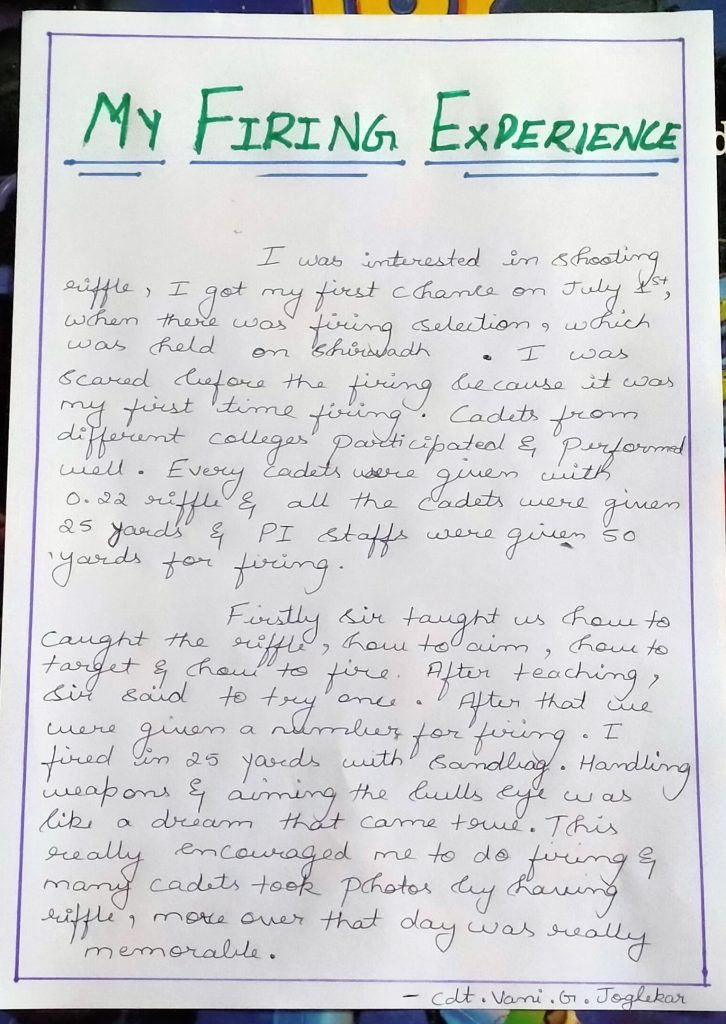 MY FIRING EXPERIENCE
I was interested in shooting
riffle, I got my first chance on July 1st,
when there was firing selection, which
was held on Shirwadh . I was
scared before the firing because it was
my first time firing. Cadets from
different colleges participated & performed
well. Every cadets were given with
0.22 riffle & all the cadets were given
25 yards & PI staffs were given 50
yards for firing.
Firstly sir taught us how to
caught the riffle, how to aim, how to
target & how to fire. After teaching,
sir said to try once. After that we
were given a number for firing. I
fired in 25 yards with sandbag. Handling
weapons & aiming the bulls eye was
like a dream that came true. This
really encouraged me to do firing &
many cadets took photos by having
riffle, more over that day was really
memorable.
- Cdt. Vani. G. Joglekar